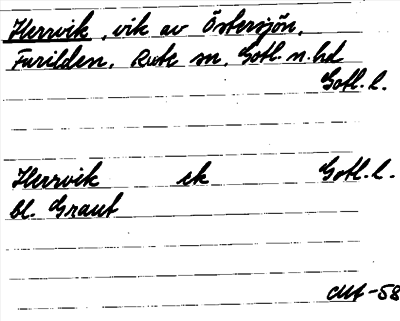 Herrvik, vik av Östersjön,
Furilden. Rute sn. Gotl. n. hd
Gotl. l.
Herrvik ek Gotl. l.
bl. Graut
-58